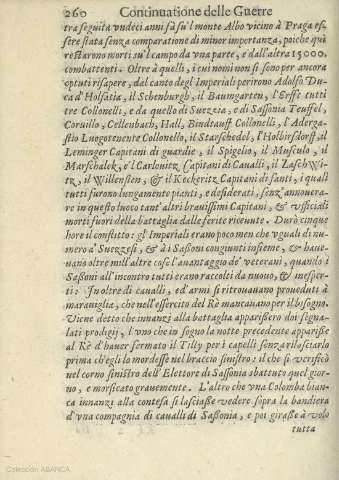 260 Continuatione delle Guerre
tra seguita vndeci anni sà sù'l monte Albo vicino à Praga es-
sere stata senza comparatione di minor importanza, poiche qui
restarono morti sù'l campo da vna parte, e dall'altra 15000.
combattenti. Oltre à quelli, i cui nomi non si sono per ancora
potuti risapere, dal canto degl'Imperiali perirono Adolfo Du-
ca d'Holsatia, il Schenburgh, il Baumgarten, l'Erffe tutti
tre Collonelli, e da quello di Suezzia, e di Sassonia Teuffel,
Coruillo, Cellenbach, Hall, Bindtauff Collonelli, l'Aderga-
stio Luogotenente Collonello, il Starschedel, l'Holbirsdorff, il
Leminger Capitani di guardie, il Spigelio, il Musculo, il
Marschalek, e'l Carlouitz Capitani di Caualli, il Lasch Wi-
tz, il Willensten, & il Keckeritz Capitani di fanti, i quali
tutti furono lungamente pianti, e desiderati, senz'annouera-
re in questo luoco tant'altri brauissimi Capitani, & vfficiali
morti fuori della battaglia dalle ferite riceuute. Durò cinque
hore il conflitto: gl'Imperiali erano poco men che vguali di nu-
mero a' Suezzesi, & à i Sassoni congiunti insieme, & haue-
uano oltre mill'altre cose l'auantaggio de' veterani, quando i
Sassoni all'incontro tutti erano raccolti da nuouo, & inesper-
ti: Inoltre di caualli, ed'armi si ritrouauano proueduti à
marauiglia, che nell'essercito del Rè mancauano per il bisogno.
Viene detto che innanzi alla battaglia apparissero doi segna-
lati prodigij, l'vno che in sogno la notte precedente apparisse
al Rè d'hauer fermato il Tilly per i capelli senza rilasciarlo
prima ch'egli lo mordesse nel braccio sinistro: il che si verificò
nel corno sinistro dell'Elettore di Sassonia sbattuto quel gior-
no, e morsicato grauemente. L'altro che vna Colomba bian-
ca innanzi alla contesa si lasciasse vedere sopra la bandiera
d'vna compagnia di caualli di Sassonia, e poi girasse à volo
tutta
Colección ABANCA